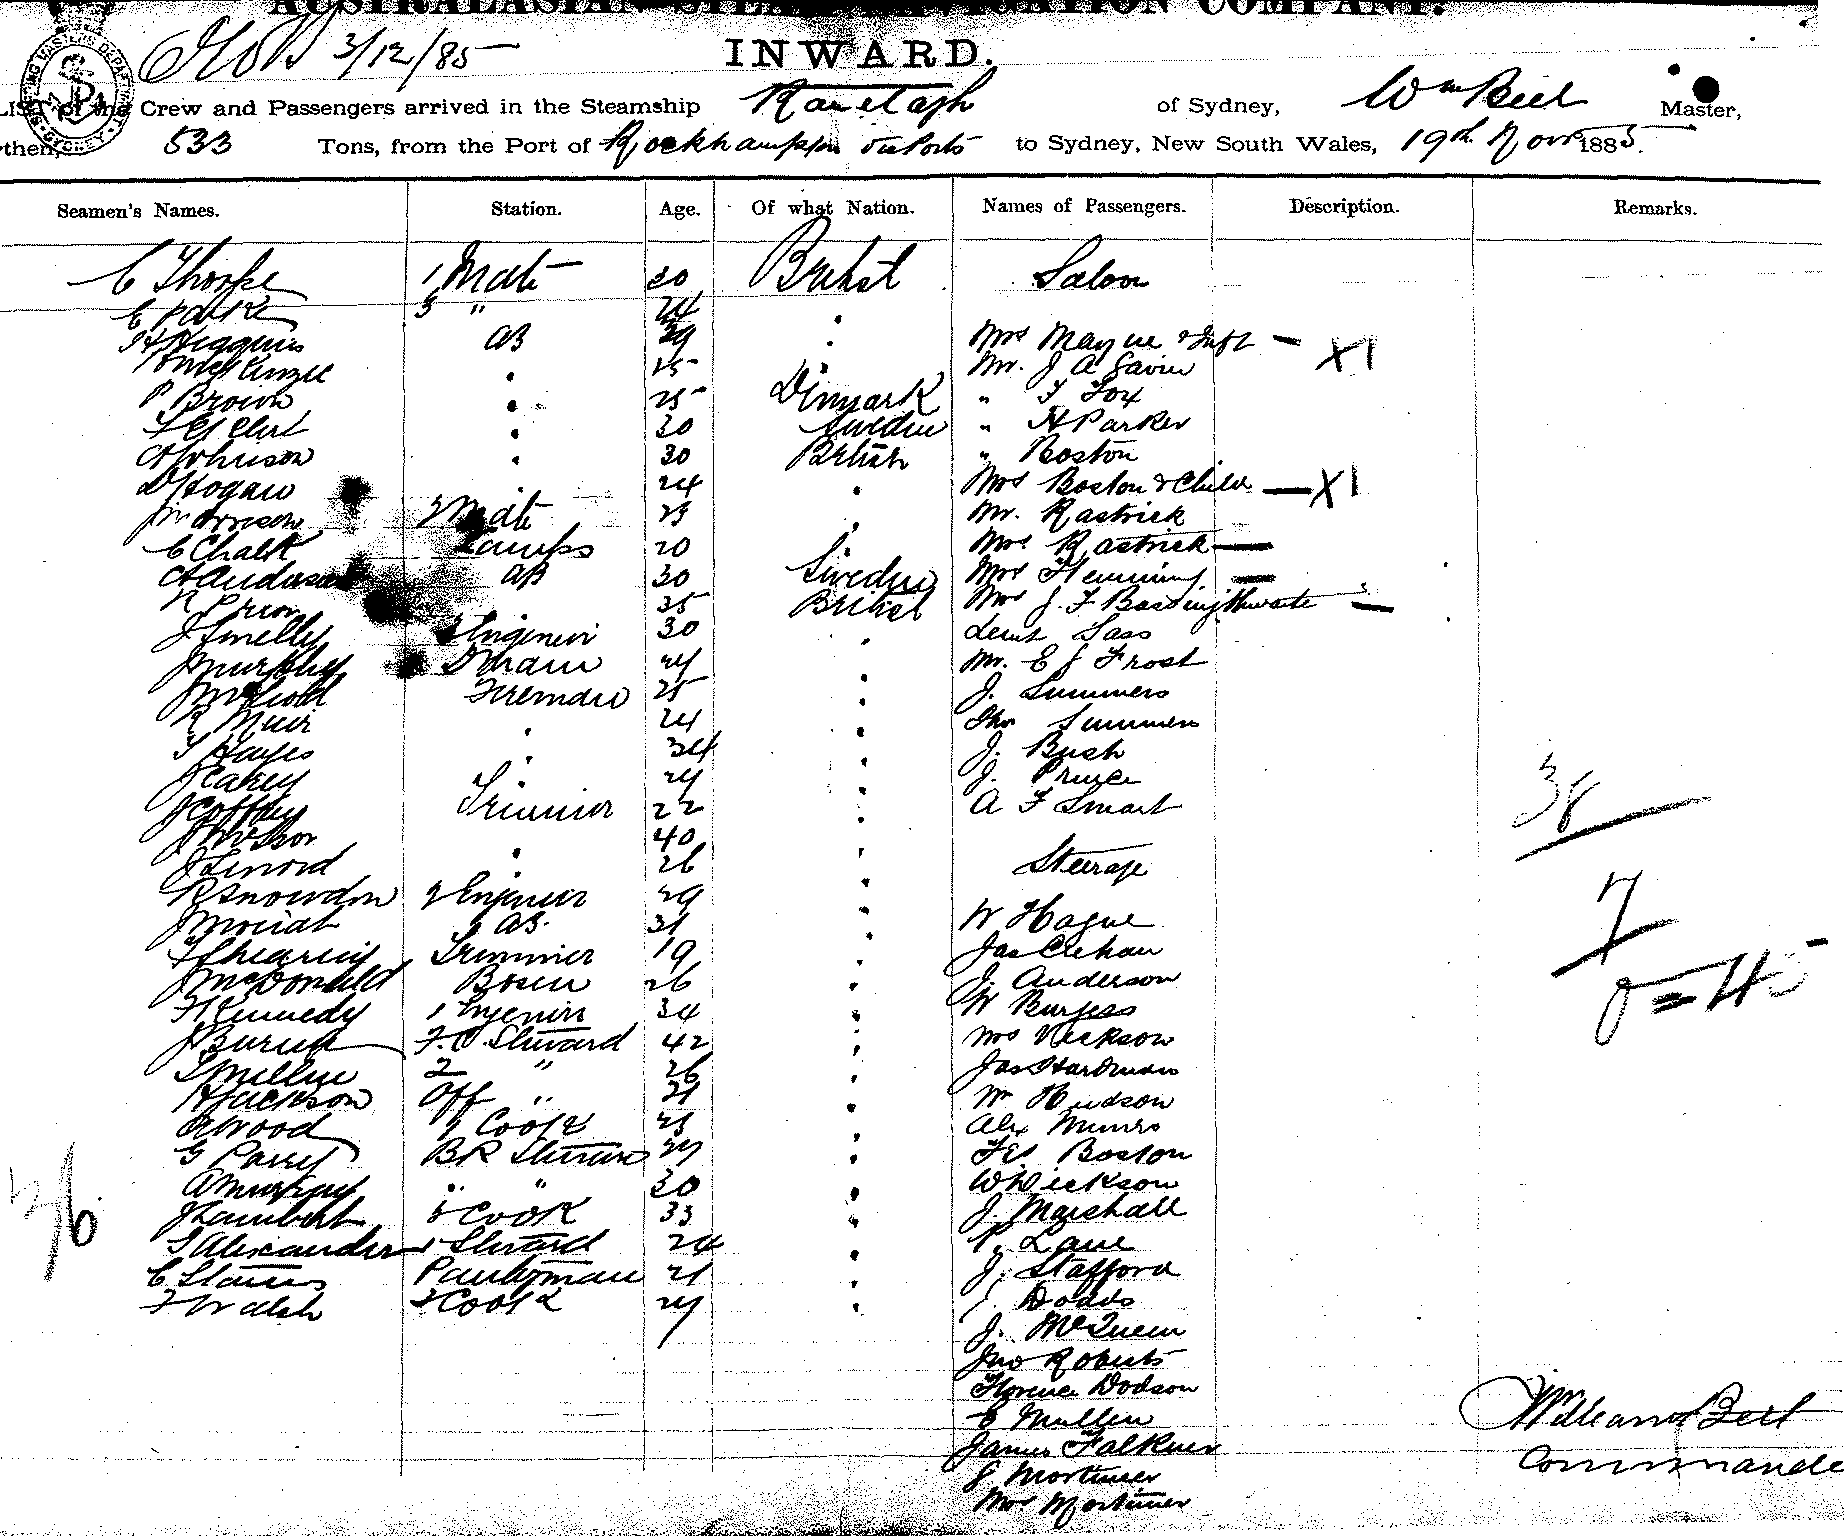 AUSTRALASIAN STEAM NAVIGATION COMPANY.
3/12/85
INWARD.
LIST of the Crew and Passengers arrived in the Steamship Ranelagh of Sydney, Wm Beet Master,
533 Tons, from the Port of Rockhampton to Sydney, New South Wales, 19th Novr 1885.
Seamen's Names. Station. Age. Of what Nation. Names of Passengers. Description. Remarks.
C Thorpe 1 Mate 30 British Saloon
3 " 24
H Higgins AB 29 Mrs Mayne & Inft — X1
McKenzie 25 Mr. J A Gavin
P Brown 25 Denmark " F Fox
30 Sweden " H Parker
A Johnson 30 British " Boston
D Hogan 24 Mrs Boston & Child — X1
J Morrison 2 Mate 23 Mr. Rastrick
C Chalk Lamps 20 Mrs Rastrick —
A Anderson AB 30 Sweden Mrs Flemming —
R Prior 35 British Mrs J. F Bassingthwaite —
J Smelly Engineer 30 Lieut Sass
J Murphy 24 Mr. E J Frost
J McLeod Fireman 25 J. Summers
R Muir 24 Summers
T Hayes 34 J. Bush
J Carey 24 J. Prince
J Coffey Trimmer 22 A F Smart
40
26 Steerage
R Snowdon 2 Engineer 29
J Mouat AB. 31 W Hague
F Shearing Trimmer 19 Jas Crehan
J McDonald Bosun 26 J. Anderson
F Kennedy 1 Engineer 34 W Burgess
F.C Steward 42 Mrs Dickson
T Mullin 2 " 26 Jas Hardman
H Jackson Off " 21 Wm Hudson
Wood 2 Cook 23 Alex Munro
G Parry BR Steward 24 Boston
A Murray " " 30 W Dickson
J Lambert 3 Cook 33 J. Marshall
T Alexander Steward 24 P. Lane
C Pantryman 21 J. Stafford
F Walsh Cook 24 Dodds
J. McQueen
Jno Roberts
Florence Dodson
E Mullin
James Falkner
J Mortimer
Mrs Mortimer
36
38
7
0 = 45
William Beet
Commander